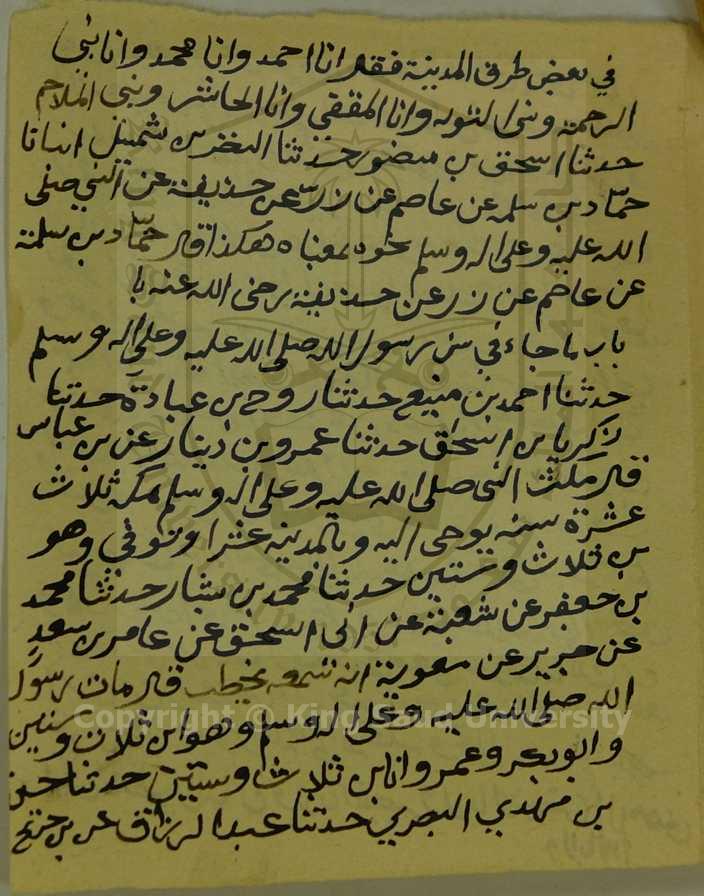 في بعض طرق المدينة فقال انا احمد وانا محمد وانا نبي
الرحمة ونبي التوبه وانا المقفي وانا الحاشر ونبي الملاحم
حدثنا اسحق بن منصور حدثنا النضر بن شميل انبانا
حماد بن سلمه عن عاصم عن زر عن حذيفة عن النبي صلى
الله عليه وعلى اله وسلم نحوه بمعناه هكذا قال حماد بن سلمة
عن عاصم عن زر عن حذيفة رضى الله عنه با
باب ماجاء في سن رسول الله صلى الله عليه وعلى اله وسلم
حدثنا احمد بن منيع حدثنا روح بن عبادة حدثنا
زكريا بن اسحاق حدثنا عمرو بن دينار عن بن عباس
قال مكث النبى صلى الله عليه وعلى اله وسلم بمكه ثلاث
عشرة سنه يوحى اليه وبالمدينه عشرا وتوفي وهو
بن ثلاث وستين حدثنا محمد بن بشار حدثنا محمد
بن جعفر عن شعبة عن ابى اسحق عن عامر بن سعد
عن جرير عن معوية انه سمعه يخطب قال مات رسول
الله صلى الله عليه وعلى اله وسلم وهو ابن ثلاث وستين
وابوبكر وعمر وانا بن ثلاث وستين حدثنا حسين
بن مهدي البصري حدثنا عبد الرزاق عن بن جريج
Copyright © King Saud University